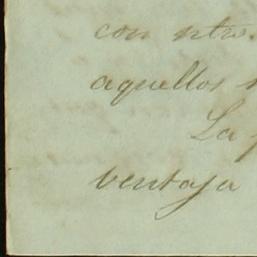 con ntro.
aquellos
La
ventaja